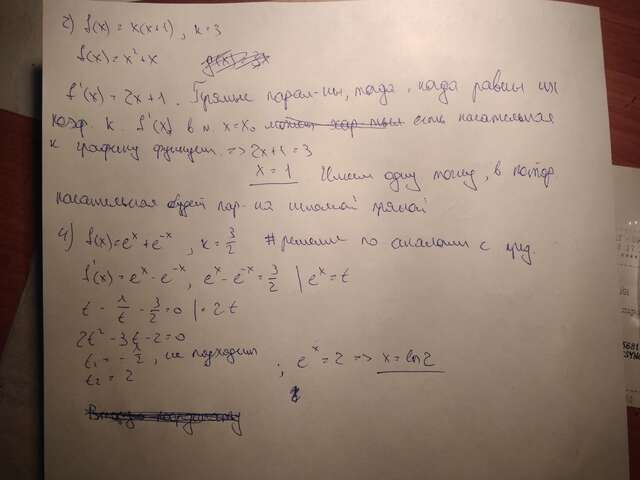 2) f(x) = x(x+1), k = 3
f(x) = x² + x
f'(x) = 2x + 1. Прямые парал-ны, тогда, когда равны их
коэф. k. f'(x) в т. x = x₀ есть касательная
к графику функции. => 2x + 1 = 3
x = 1 Имеем одну точку, в котор.
касательная будет пар-на искомой прямой
4) f(x) = eˣ + e⁻ˣ, k = 3/2 # решение по аналогии с пред.
f'(x) = eˣ - e⁻ˣ, eˣ - e⁻ˣ = 3/2 | eˣ = t
t - 1/t - 3/2 = 0 | = 2t
2t² - 3t - 2 = 0
t₁ = -1/2, не подходит
t₂ = 2 ; eˣ = 2 => x = ln2